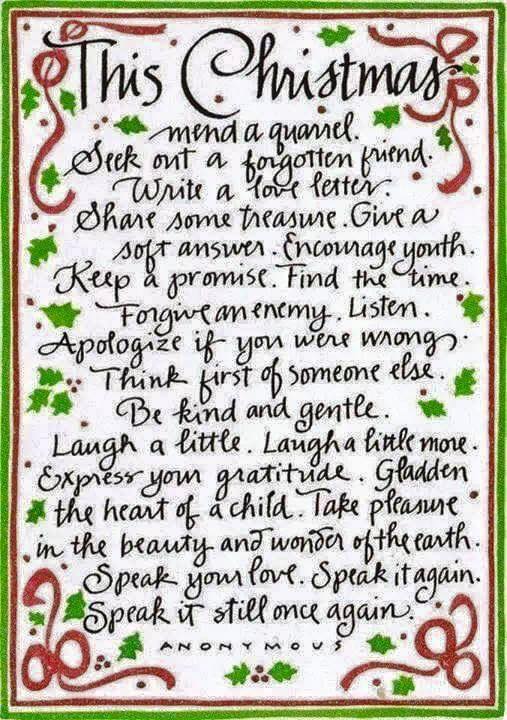 This Christmas
mend a quarrel.
Seek out a forgotten friend.
Write a love letter.
Share some treasure. Give a
soft answer. Encourage youth.
Keep a promise. Find the time.
Forgive an enemy. Listen.
Apologize if you were wrong.
Think first of someone else.
Be kind and gentle.
Laugh a little. Laugh a little more.
Express your gratitude. Gladden
the heart of a child. Take pleasure
in the beauty and wonder of the earth.
Speak your love. Speak it again.
Speak it still once again.
ANONYMOUS